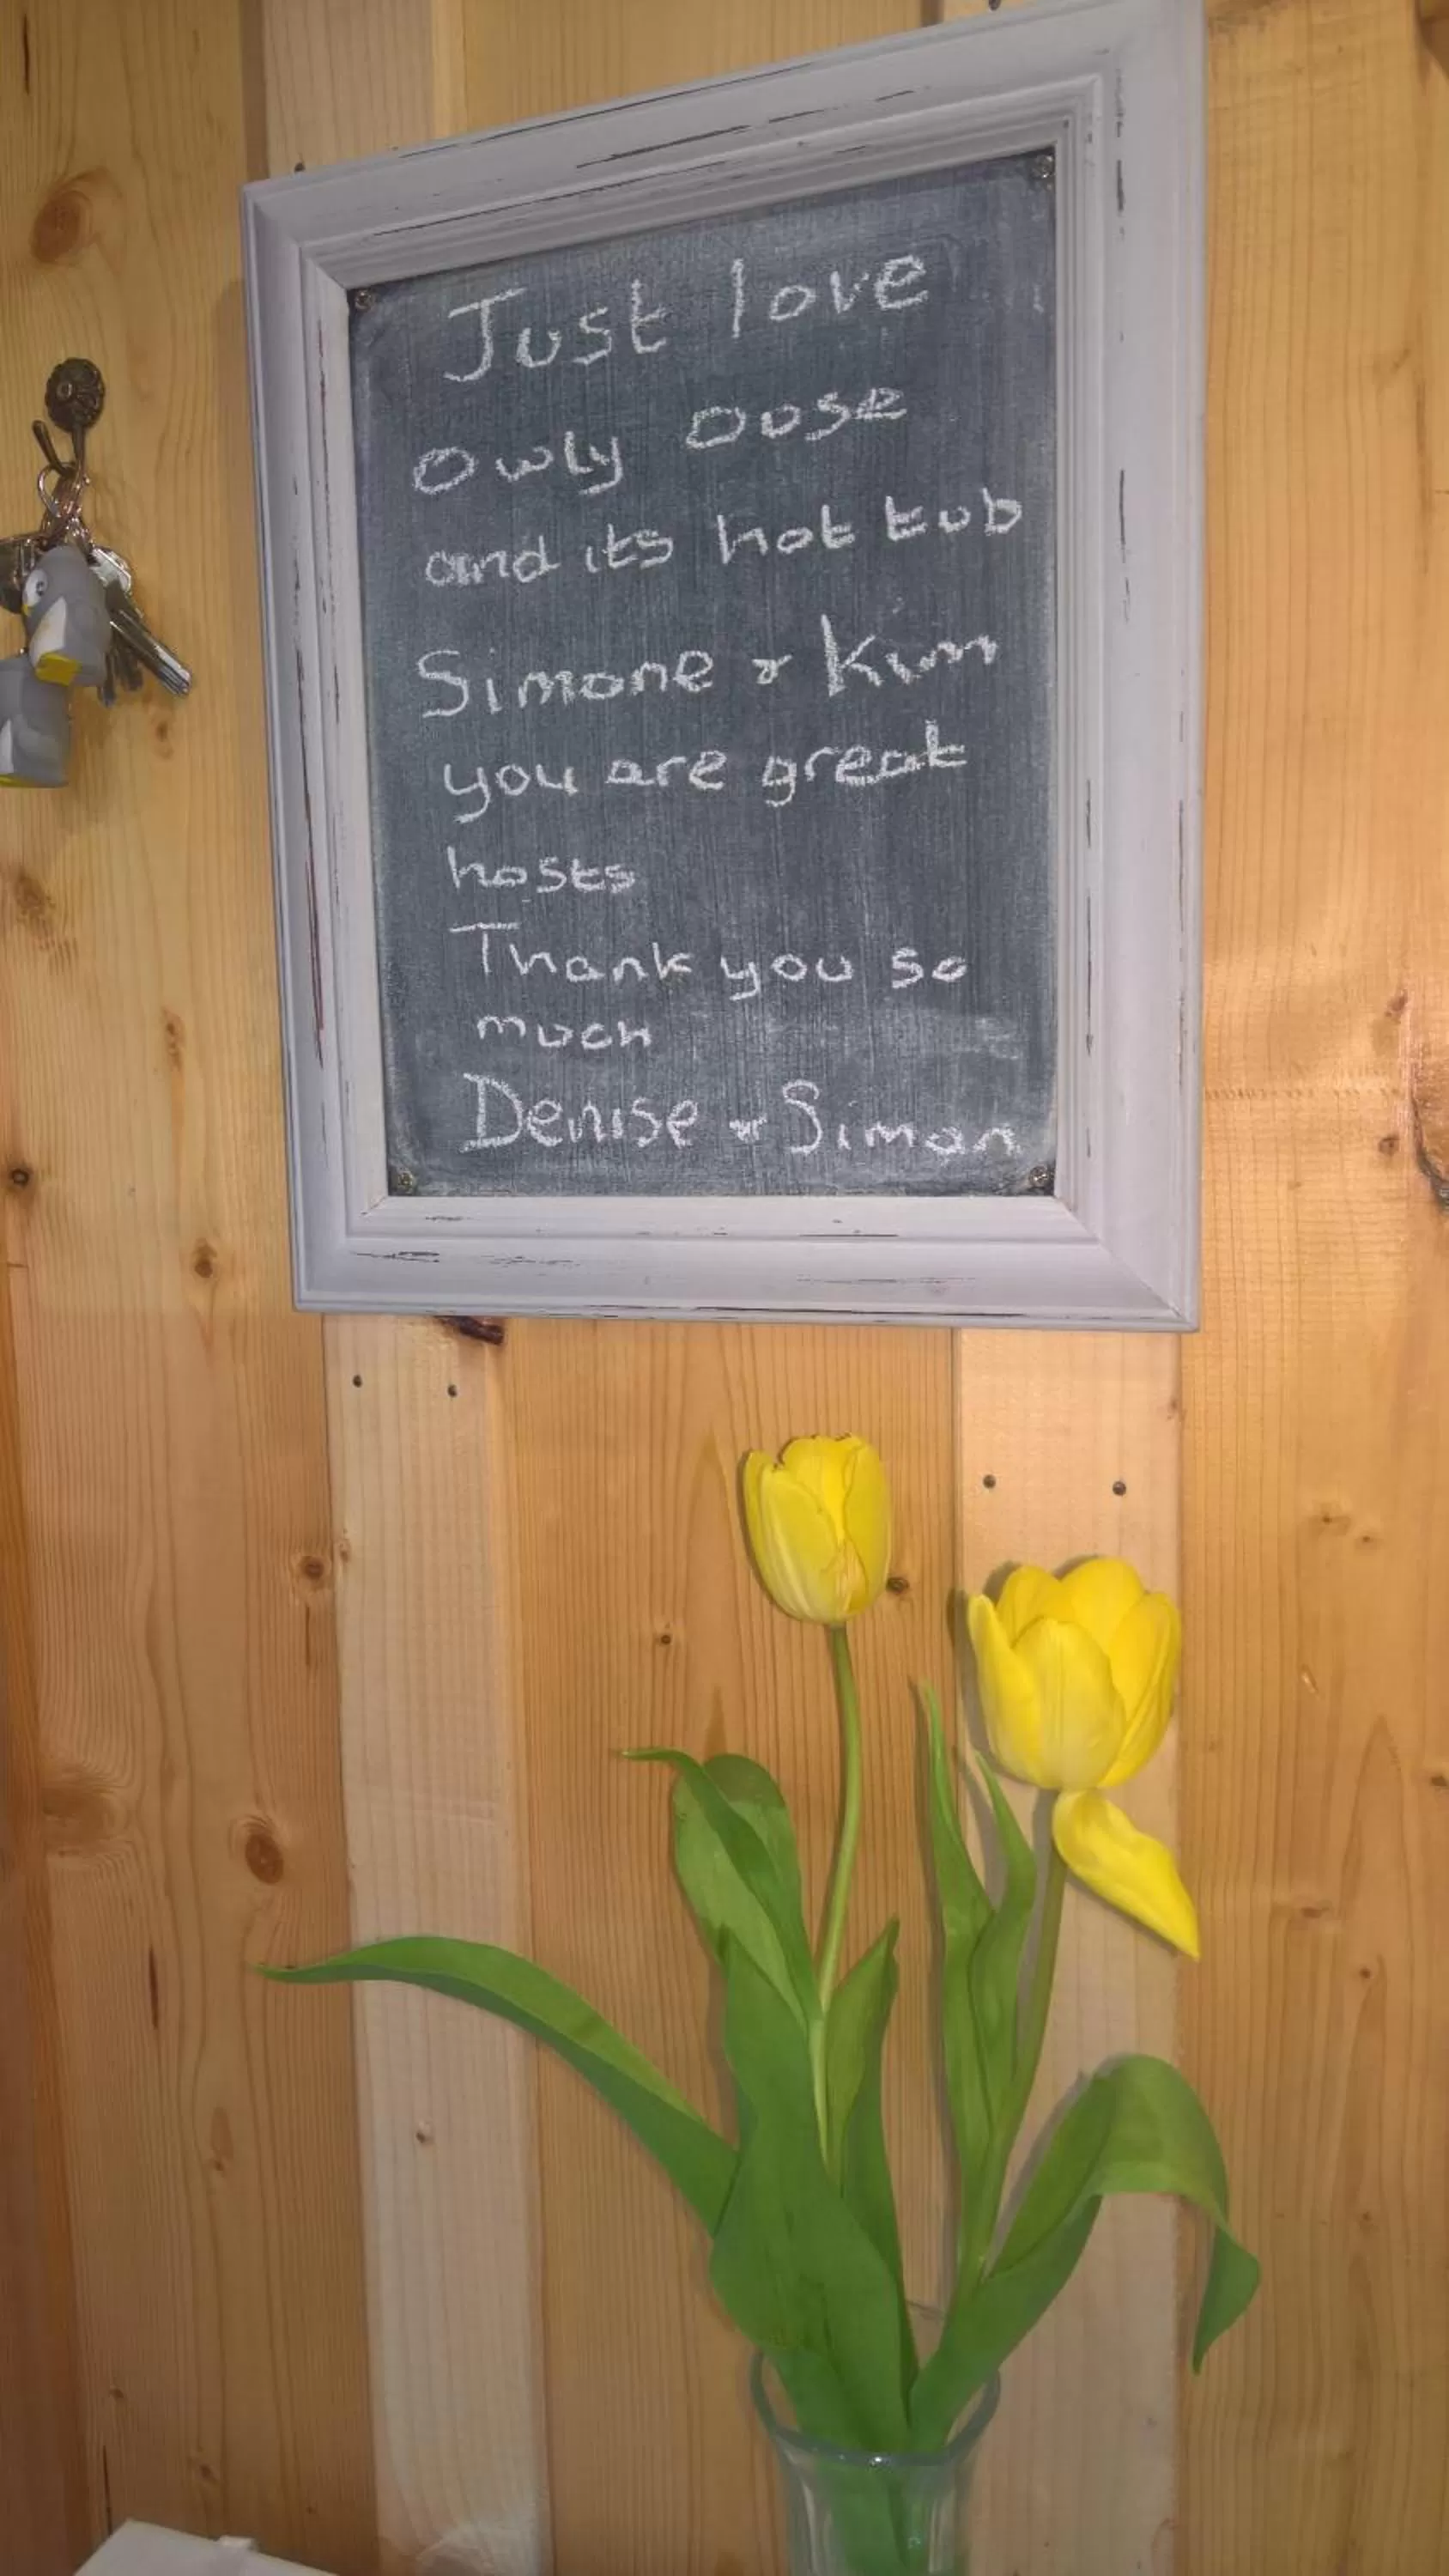 Just love
Owly Oose
and its hot tub
Simone & Kim
you are great
hosts
Thank you so
much
Denise & Simon